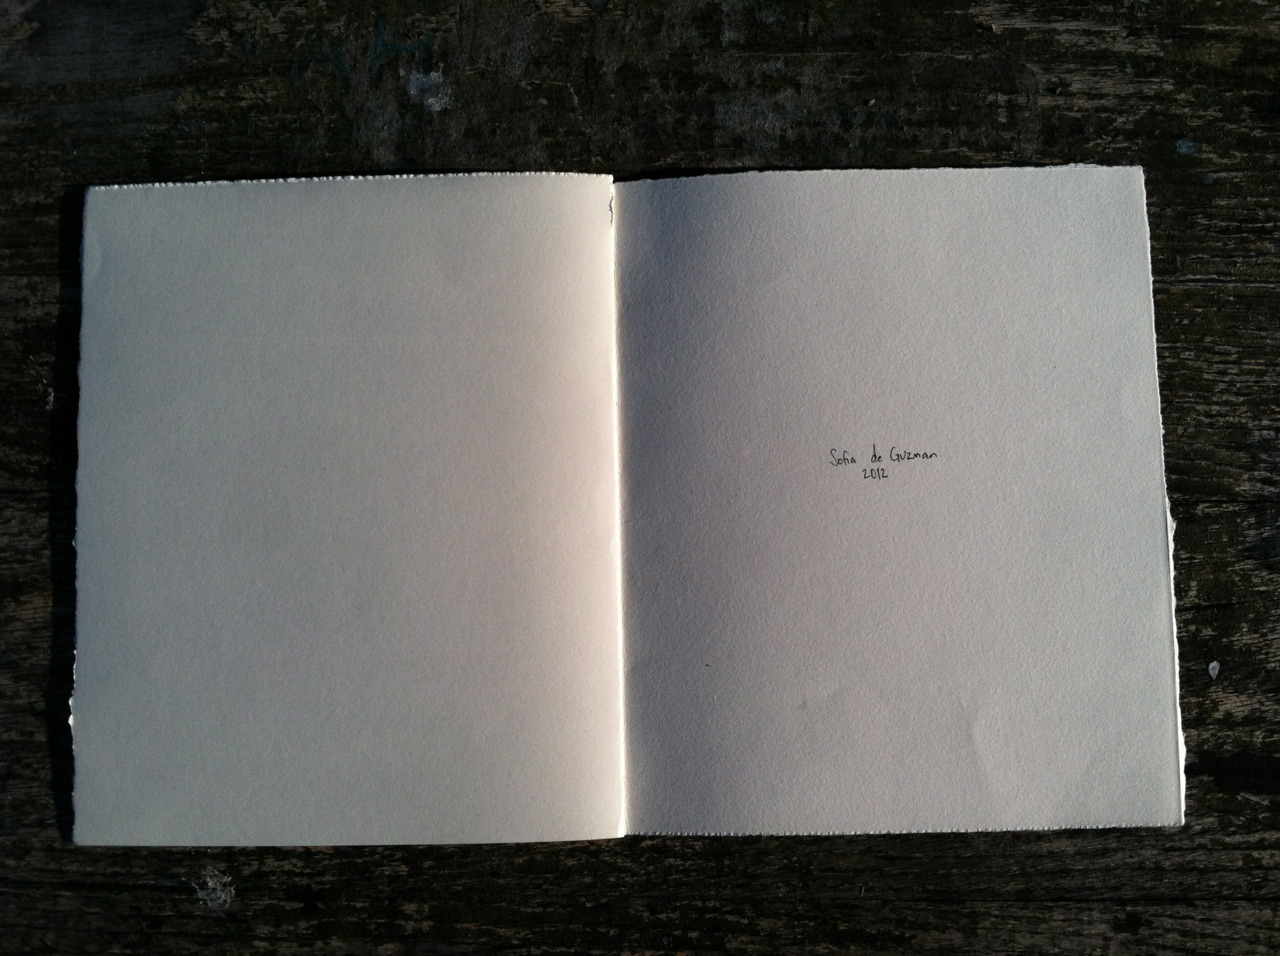 Sofia de Guzman
2012